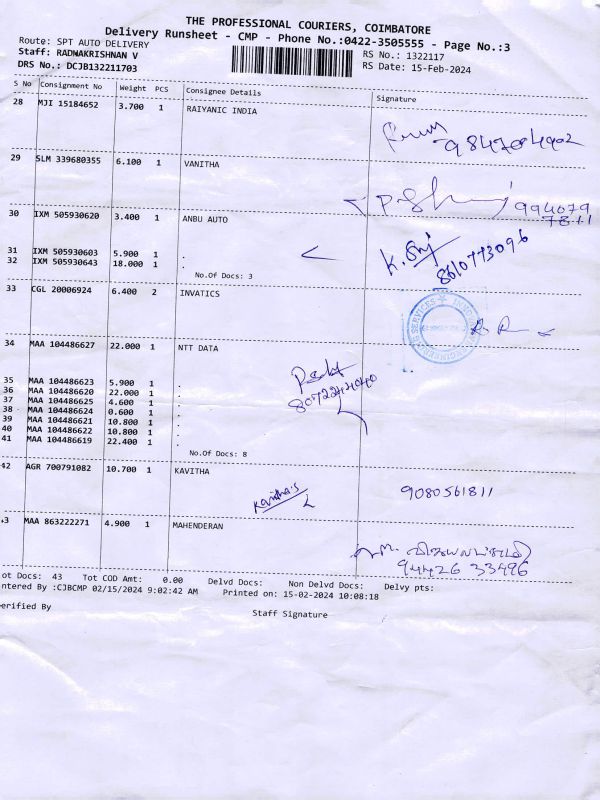 THE PROFESSIONAL COURIERS, COIMBATORE
Delivery Runsheet - CMP - Phone No.:0422-3505555 - Page No.:3
Route: SPT AUTO DELIVERY
RS No.: 1322117
Staff: RADHAKRISHNAN V
RS Date: 15-Feb-2024
DRS No.: DCJB132211703
S No Consignment No Weight PCS Consignee Details Signature
28 MJI 15184652 3.700 1 RAIYANIC INDIA
9847084902
29 SLM 339680355 6.100 1 VANITHA
994079
7811
30 IXM 505930620 3.400 1 ANBU AUTO
8610773096
31 IXM 505930603 5.900 1 .
32 IXM 505930643 18.000 1 .
No.Of Docs: 3
33 CGL 20006924 6.400 2 INVATICS
34 MAA 104486627 22.000 1 NTT DATA
35 MAA 104486623 5.900 1 .
36 MAA 104486620 22.000 1 .
37 MAA 104486625 4.600 1 .
38 MAA 104486624 0.600 1 .
39 MAA 104486621 10.800 1 .
40 MAA 104486622 10.800 1 .
41 MAA 104486619 22.400 1 .
No.Of Docs: 8
42 AGR 700791082 10.700 1 KAVITHA
Kavitha.s
9080561811
43 MAA 863222271 4.900 1 MAHENDERAN
94426 33496
ot Docs: 43 Tot COD Amt: 0.00 Delvd Docs: Non Delvd Docs: Delvy pts:
ntered By :CJBCMP 02/15/2024 9:02:42 AM Printed on: 15-02-2024 10:08:18
erified By Staff Signature